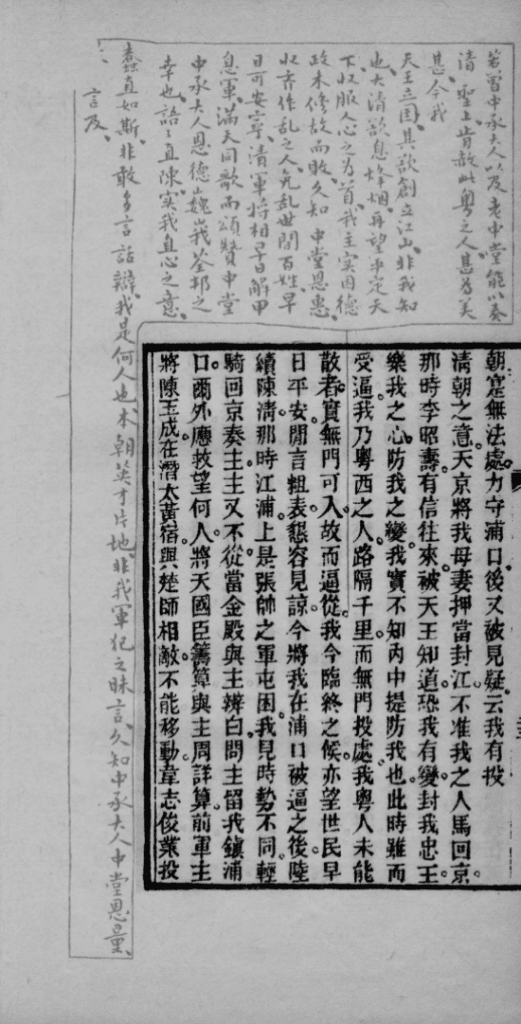 若曾中承大人以及老中堂能以奏
清聖上肯赦此粵之人甚為美
甚今我
天王立国其欲創立江山非我知
也大清欲息烽烟再望平定天
下収服人心之為首我主实因德
政未修故而敗久知中堂恩惠
収齐作乱之人免乱世間百姓早
日可安寧、清軍將相早日解甲
息軍、滿天同歌而頌贊中堂
中承大人恩德巍我荃邦之
幸也、語々直陳、实我直心之意、
蠢直如斯、非敢多言話辯、我是何人也、本朝英才片地、非我軍犯之昧言、久知中承大人中堂恩量、
言及、
朝寔無法處。力守浦口後又被見疑。云我有投
清朝之意。天京將我母妻押當封江。不准我之人馬回京。
那時李昭壽。有信往來。被天王知道。恐我有變。封我忠王。
樂我之心。防我之變。我實不知內中提防我也。此時雖而
受逼。我乃粵西之人。路隔千里。而無門投處。我粵人未能
散者。實無門可入。故而逼從。我今臨終之候。亦望世民早
日平安。閒言粗表。懇容見諒。今將我在浦口被逼之後陸
續陳清。那時江浦上是張帥之軍屯困。我見時勢不同。輕
騎回京奏主。主又不從。當金殿與主辨白。問主留我鎮浦
口。爾外應救望何人。將天國臣籌算。與主周詳算前軍主
將陳玉成在潛太黃宿。與楚師相敵。不能移動。韋志俊業投